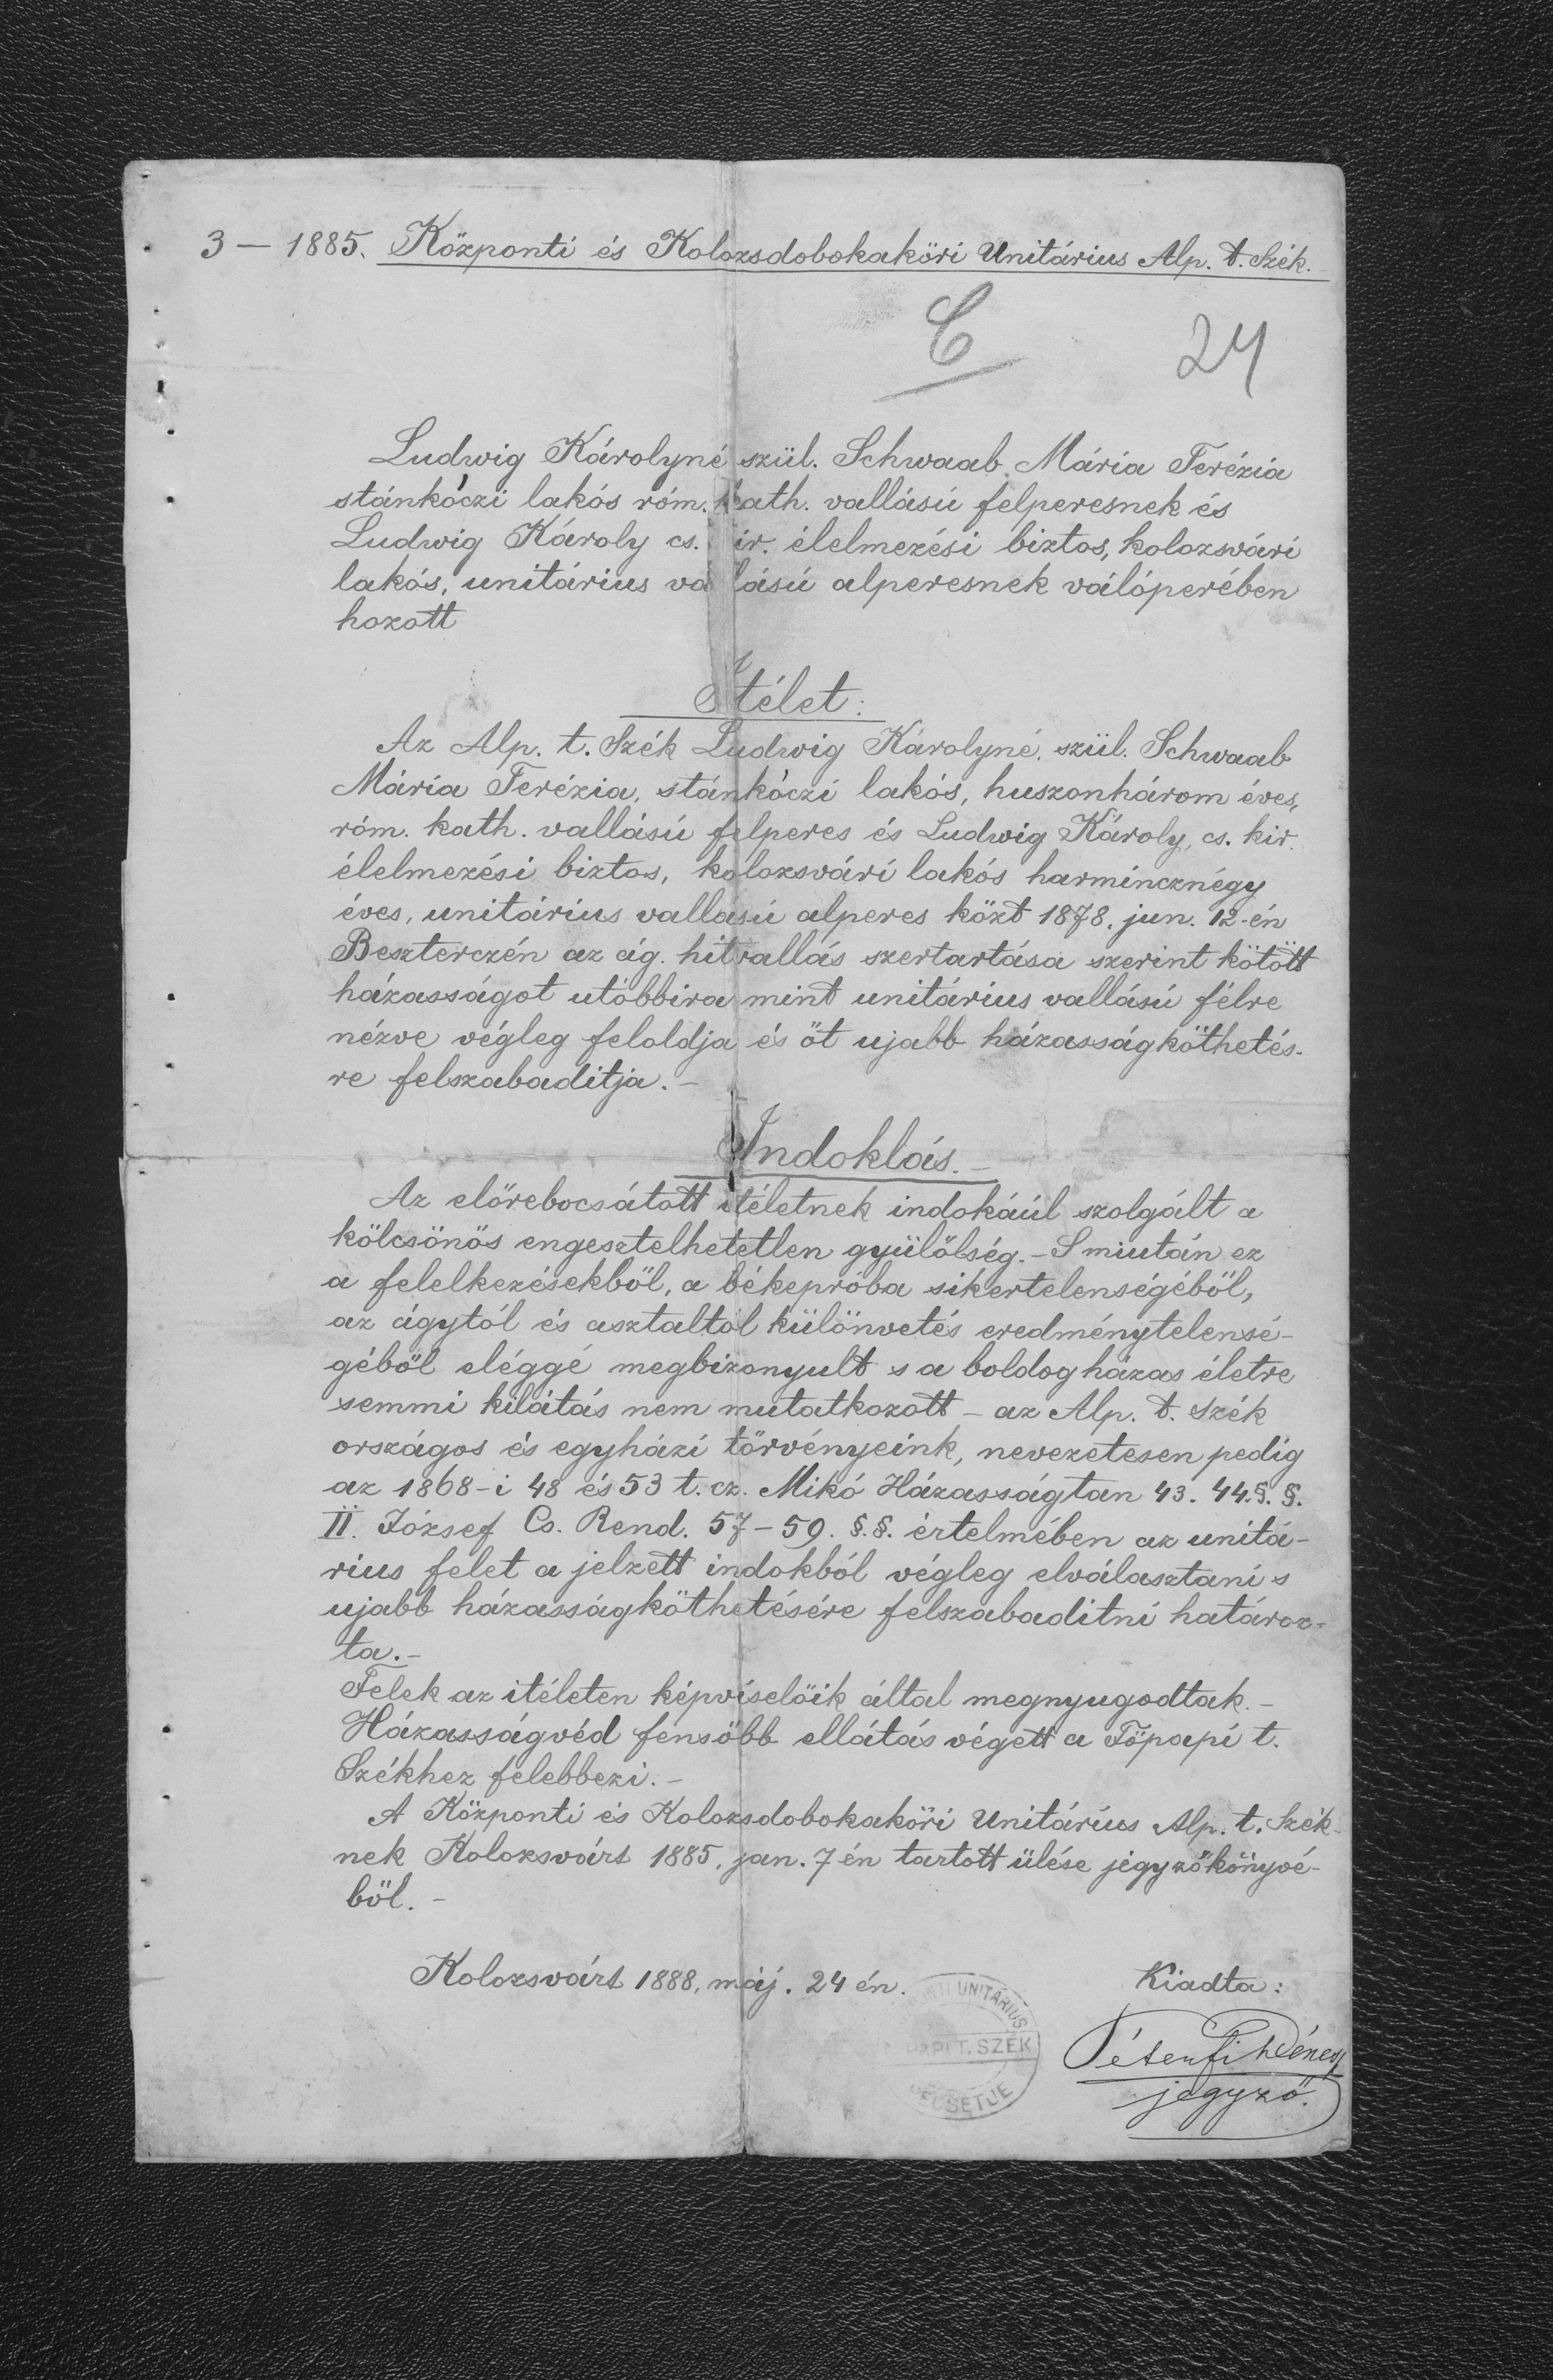 3 – 1885. Központi és Kolozsdobokaköri Unitárius Alp. t. Szék.
C
24
Ludwig Károlyné szül. Schwaab Mária Terézia
stánkóczi lakós róm. kath. vallásu felperesnek és
Ludwig Károly cs. kir. élelmezési biztos, kolozsvári
lakós, unitárius vallásu alperesnek válóperében
hozott
Itélet:
Az Alp. t. Szék Ludwig Károlyné, szül. Schwaab
Mária Terézia, stánkóczi lakós, huszonhárom éves,
róm. kath. vallásu felperes és Ludwig Károly, cs. kir.
élelmezési biztos, kolozsvári lakós harmincznégy
éves, unitárius vallásu alperes közt 1878. jun. 12-én
Beszterczén az ág. hitvallás szertartása szerint kötött
házasságot utóbbira mint unitárius vallásu félre
nézve végleg feloldja és őt ujabb házasságköthetés-
re felszabaditja. –
Indoklás. –
Az előrebocsátott itéletnek indokáúl szolgált a
kölcsönös engesztelhetetlen gyülölség. – S miután ez
a felelkezésekből, a békepróba sikertelenségéből,
az ágytól és asztaltól különvetés eredménytelensé-
géből eléggé megbizonyult s a boldog házas életre
semmi kilátás nem mutatkozott – az Alp. t. Szék
országos és egyházi törvényeink, nevezetesen pedig
az 1868-i 48 és 53 t. cz. Mikó Házasságtan 43. 44. §. §.
II. József Cs. Rend. 57 – 59. §. §. értelmében az unitá-
rius felet a jelzett indokból végleg elválasztani s
ujabb házasságköthetésére felszabaditni határoz-
ta. –
Felek az itéleten képviselőik által megnyugodtak. –
Házasságvéd fensőbb ellátás végett a Főpapi t.
Székhez felebbezi. –
A Központi és Kolozsdobokaköri Unitárius Alp. t. Szék-
nek Kolozsvárt 1885, jan. 7 én tartott ülése jegyzőkönyvé-
ből. –
Kolozsvárt 1888, máj. 24 én.
Kiadta:
UNITÁRIUS
T. SZÉK
PECSÉTJE
Péterfi Dénes
jegyző.